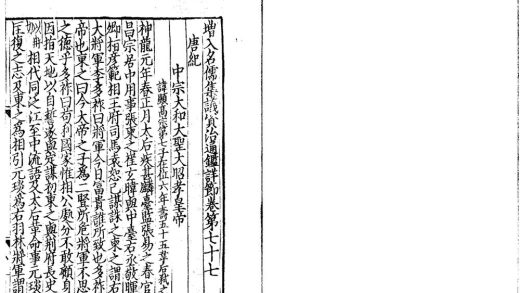 增入名儒集議資治通鑑詳節卷第七十七
唐紀
中宗大和大聖大昭孝皇帝
諱顯高宗第七子在位六年壽五十五韋后弒之
神龍元年春正月太后疾甚麟臺監張易之春官
昌宗居中用事張柬之崔玄暐與中臺右丞敬暉
卿桓彥範相王府司馬袁恕己謀誅之柬之謂右
大將軍李多祚曰將軍今日富貴誰所致也多祚
帝也柬之曰今大帝之子為二豎所危將軍不思
之德乎多祚曰苟利國家惟相公處分不敢顧身
因指天地以自誓遂與定謀初柬之與荊府長史
相代同泛江至中流語及太后革命事元琰
匡復之志及柬之為相引元琰為右羽林將軍謂